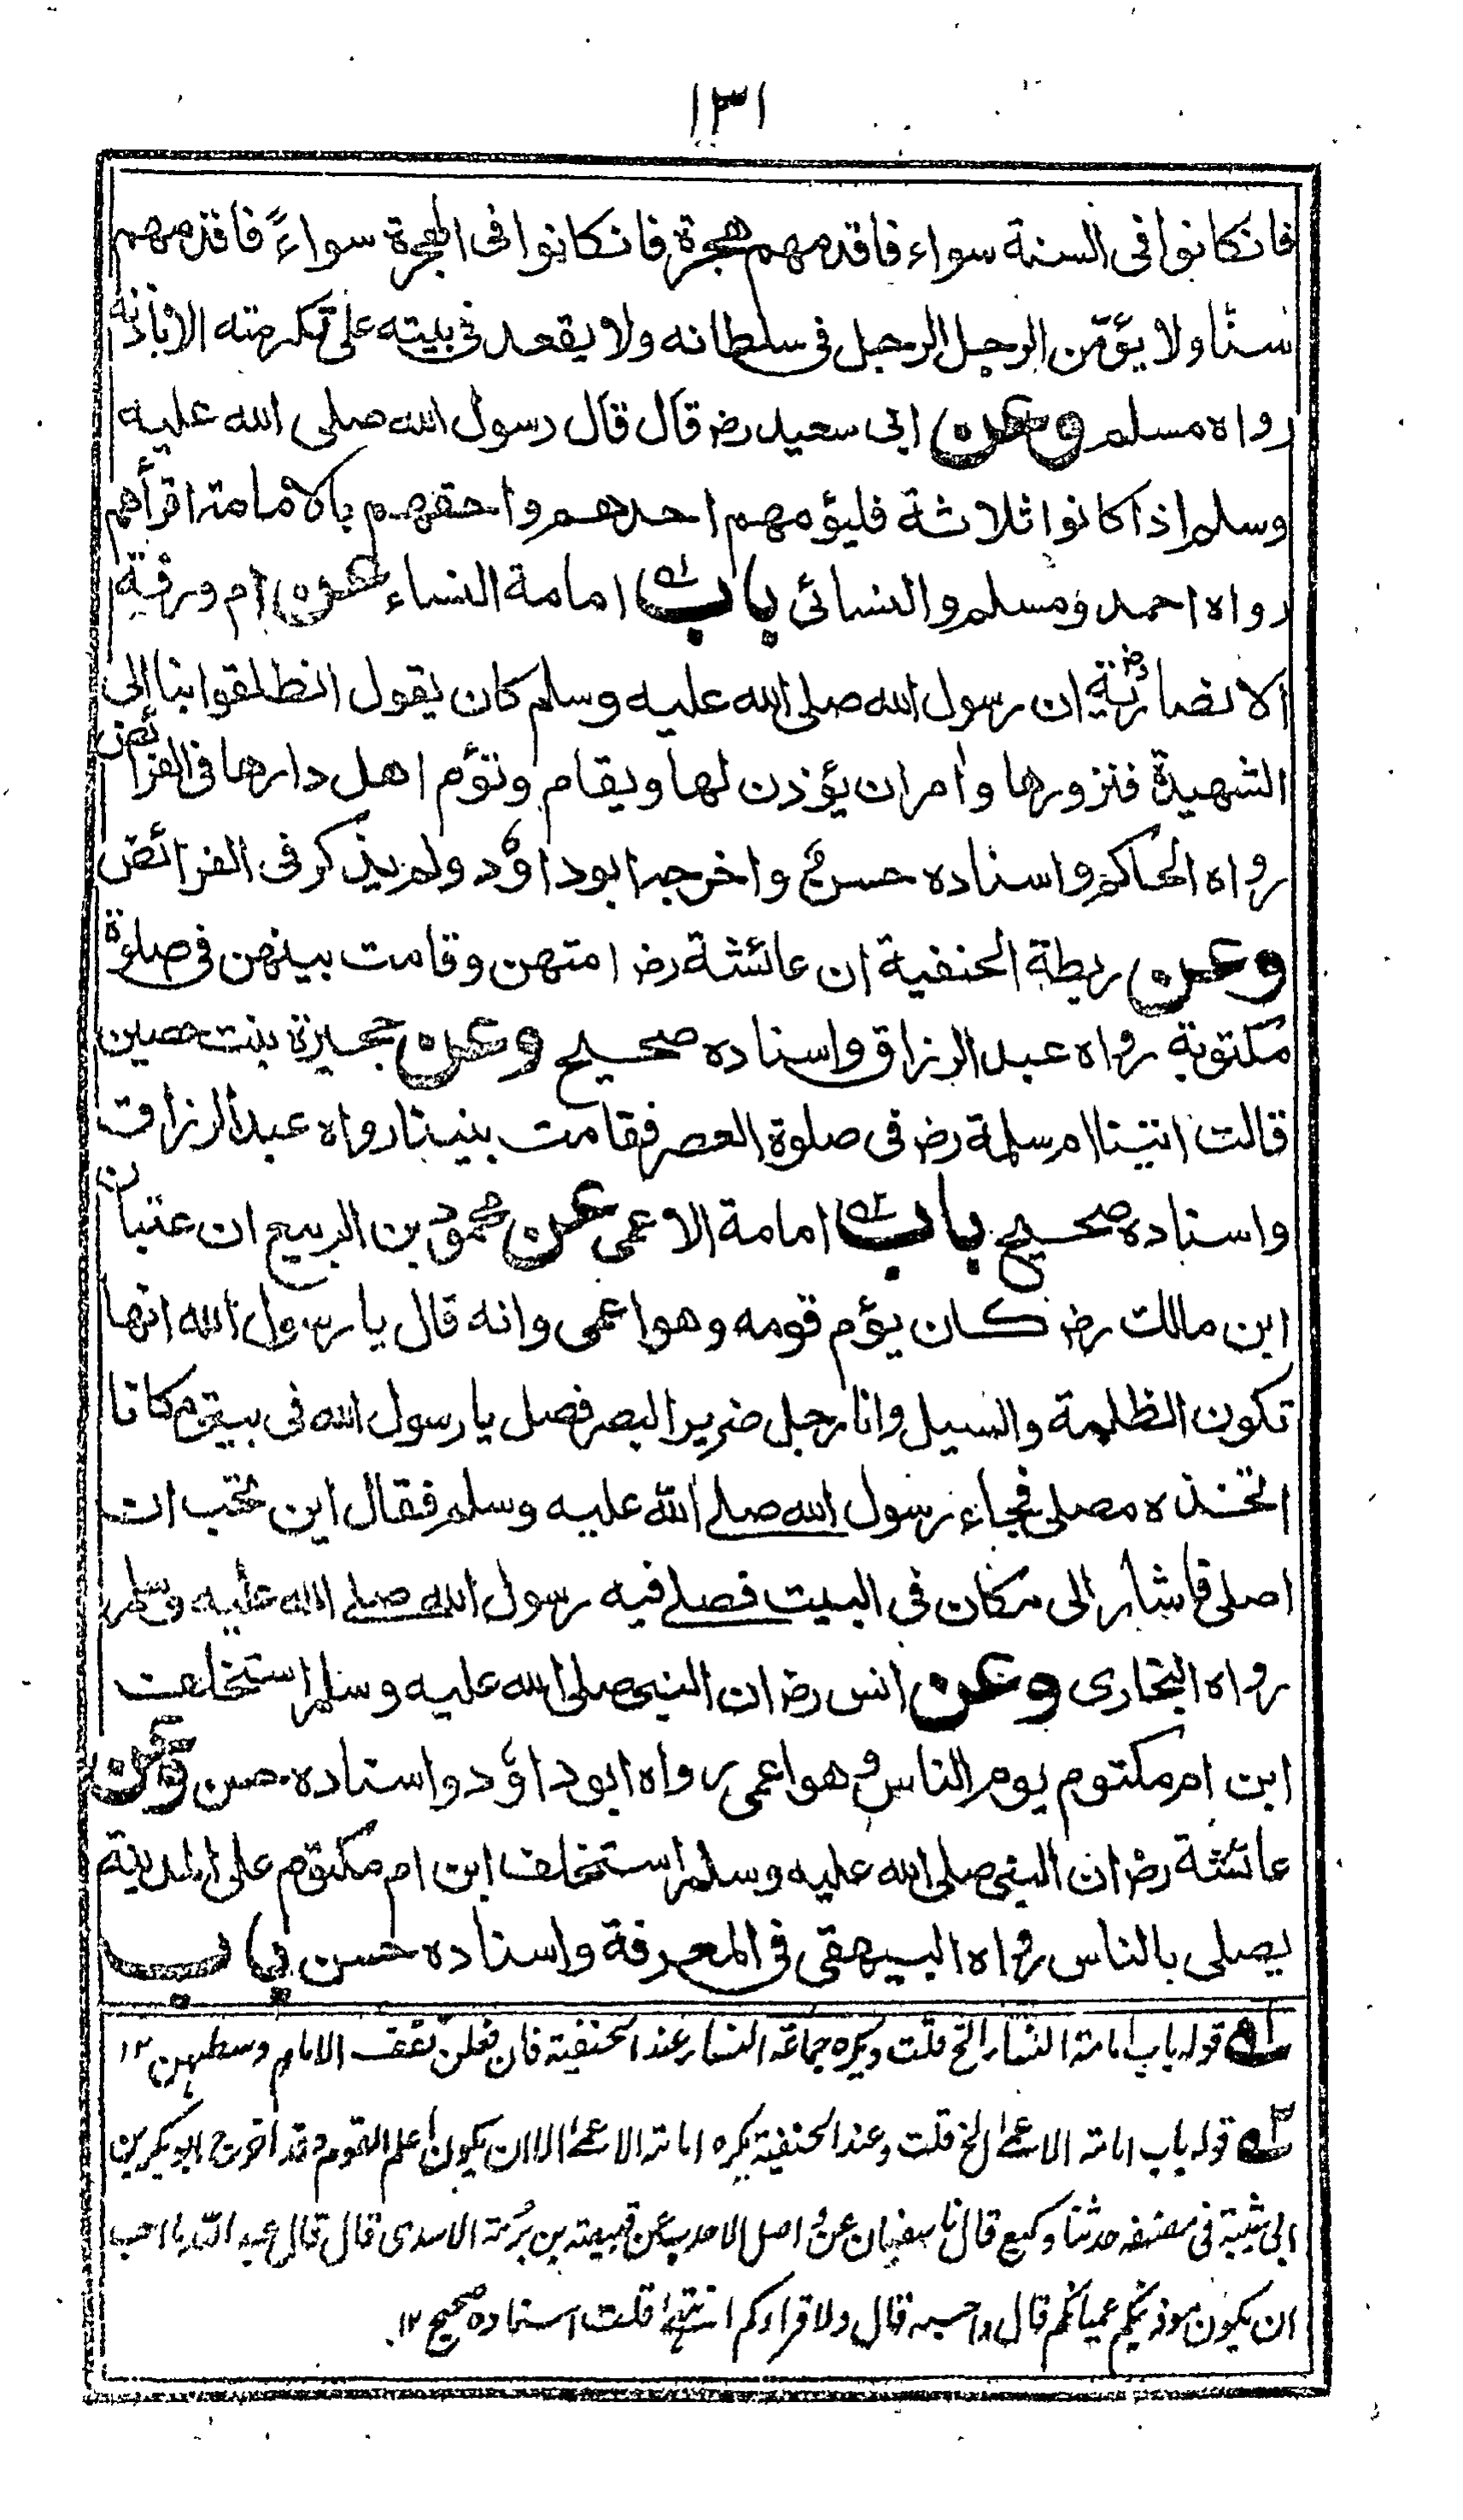 ١٣١
فانكانوا فى السنة سواء فاقدمهم هجرة فانكانوا فى الهجرة سواءً فاقدمهم
سنًّا ولا يؤمّن الرجل الرجل فى سلطانه ولا يقعد فى بيته على تكرمته الا باذنه
رواه مسلم وعن ابى سعيد رضـ قال قال رسول الله صلى الله عليه
وسلم اذا كانوا ثلاثة فليؤمهم احدهم واحقهم بالامامة اقرأهم
رواه احمد ومسلم والنسائى باب امامة النساء عن ام ورقة
الانصارية رضـ ان رسول الله صلى الله عليه وسلم كان يقول انطلقوا بنا إلى
الشهيدة فنزورها وامر ان يؤذن لها ويقام وتؤم اهل دارها فى الفرائض
رواه الحاكم واسناده حسن واخرجه ابوداؤد ولم يذكر فى الفرائض
وعن ريطة الحنفية ان عائشة رضـ امتهن وقامت بينهن فى صلوة
مكتوبة رواه عبد الرزاق واسناده صحيح وعن حجيرة بنت حصين
قالت امّتنا ام سلمة رضـ فى صلوة العصر فقامت بيننا رواه عبد الرزاق
واسناده صحيح باب امامة الاعمى عن محمود بن الربيع ان عتبان
ابن مالك رضـ كان يؤم قومه وهو اعمى وانه قال يا رسول الله انها
تكون الظلمة والسيل وانا رجل ضرير البصر فصل يا رسول الله فى بيتى مكانا
اتخذه مصلى فجاء رسول الله صلے الله عليه وسلم فقال اين تحب ان
اصلى فاشار الى مكان فى البيت فصلے فيه رسول الله صلے الله عليه وسلم
رواه البخارى وعن انس رضـ ان النبى صلى الله عليه وسلم استخلف
ابن ام مكتوم يوم الناس وهو اعمى رواه ابوداؤد واسناده حسن وعن
عائشة رضـ ان النبى صلى الله عليه وسلم استخلف ابن ام مكتوم على المدينة
يصلى بالناس رواه البيهقى فى المعرفة واسناده حسن باب
له قوله باب امامة النساء الخ قلت ويكره جماعة النساء عند الحنفية فان فعلن تقف الامام وسطهن ١٢
٢ه قوله باب امامة الاعمےٰ الخ قلت وعند الحنفية يكره امامة الاعمےٰ الا ان يكون اعلم القوم وقد اخرج ابوبكر بن
ابى شيبة فى مصنفه حدثنا وكيع قال نا سفيان عن واصل الاحدب عن قبيصة بن برمة الاسدى قال قال عبد الله ما احب
ان يكون موذنيكم عميانكم قال واحسبه قال ولا قراءكم انتهےٰ قلت اسناده صحيح ١٢